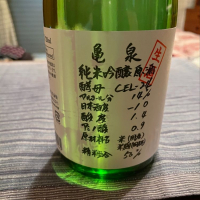 亀泉
生
純米吟醸原酒
酵母 CEL-24
アルコール分 14%
日本酒度 -10
酸度 1.4
アミノ酸 0.9
原材料名 米
精米歩合 50%